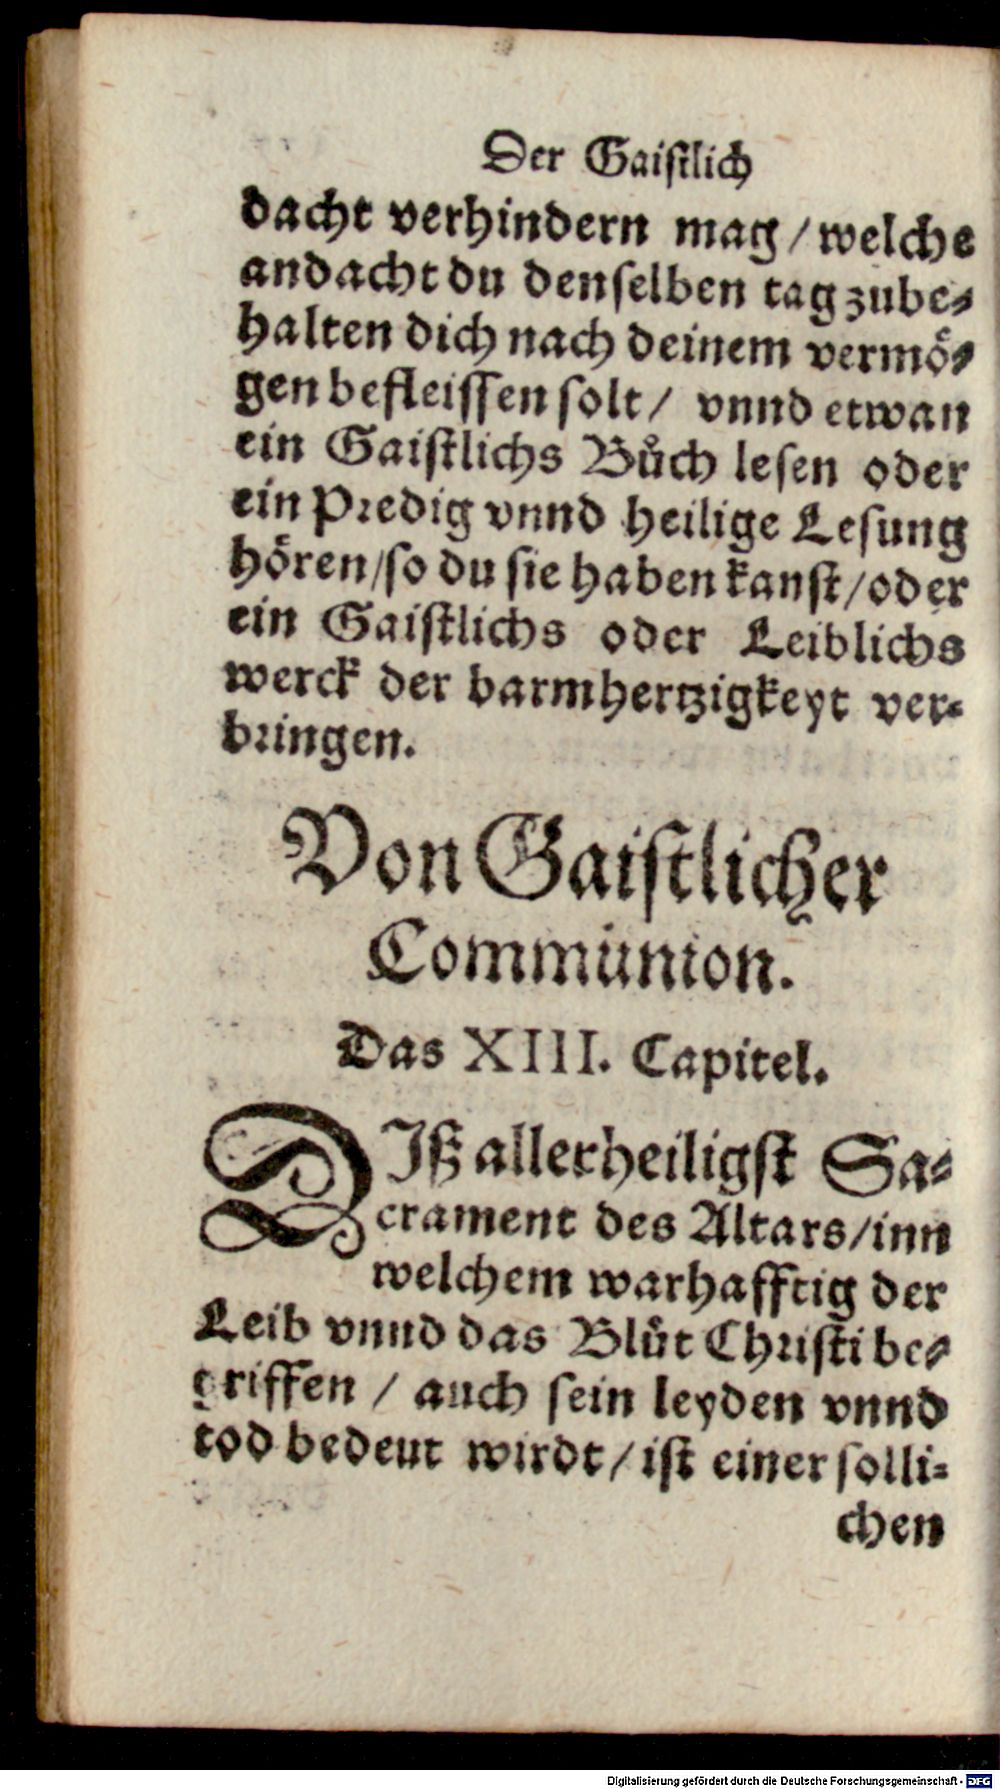 Der Gaistlich
dacht verhindern mag / welche
andacht du denselben tag zube-
halten dich nach deinem vermö-
gen befleissen solt / vnnd etwan
ein Gaistlichs Bůch lesen oder
ein Predig vnnd heilige Lesung
hören / so du sie haben kanst / oder
ein Gaistlichs oder Leiblichs
werck der barmhertzigkeyt ver-
bringen.
Von Gaistlicher
Communion.
Das XIII. Capitel.
DIß allerheiligst Sa-
crament des Altars / inn
welchem warhafftig der
Leib vnnd das Blůt Christi be-
griffen / auch sein leyden vnnd
tod bedeut wirdt / ist einer solli-
chen
Digitalisierung gefördert durch die Deutsche Forschungsgemeinschaft - DFG